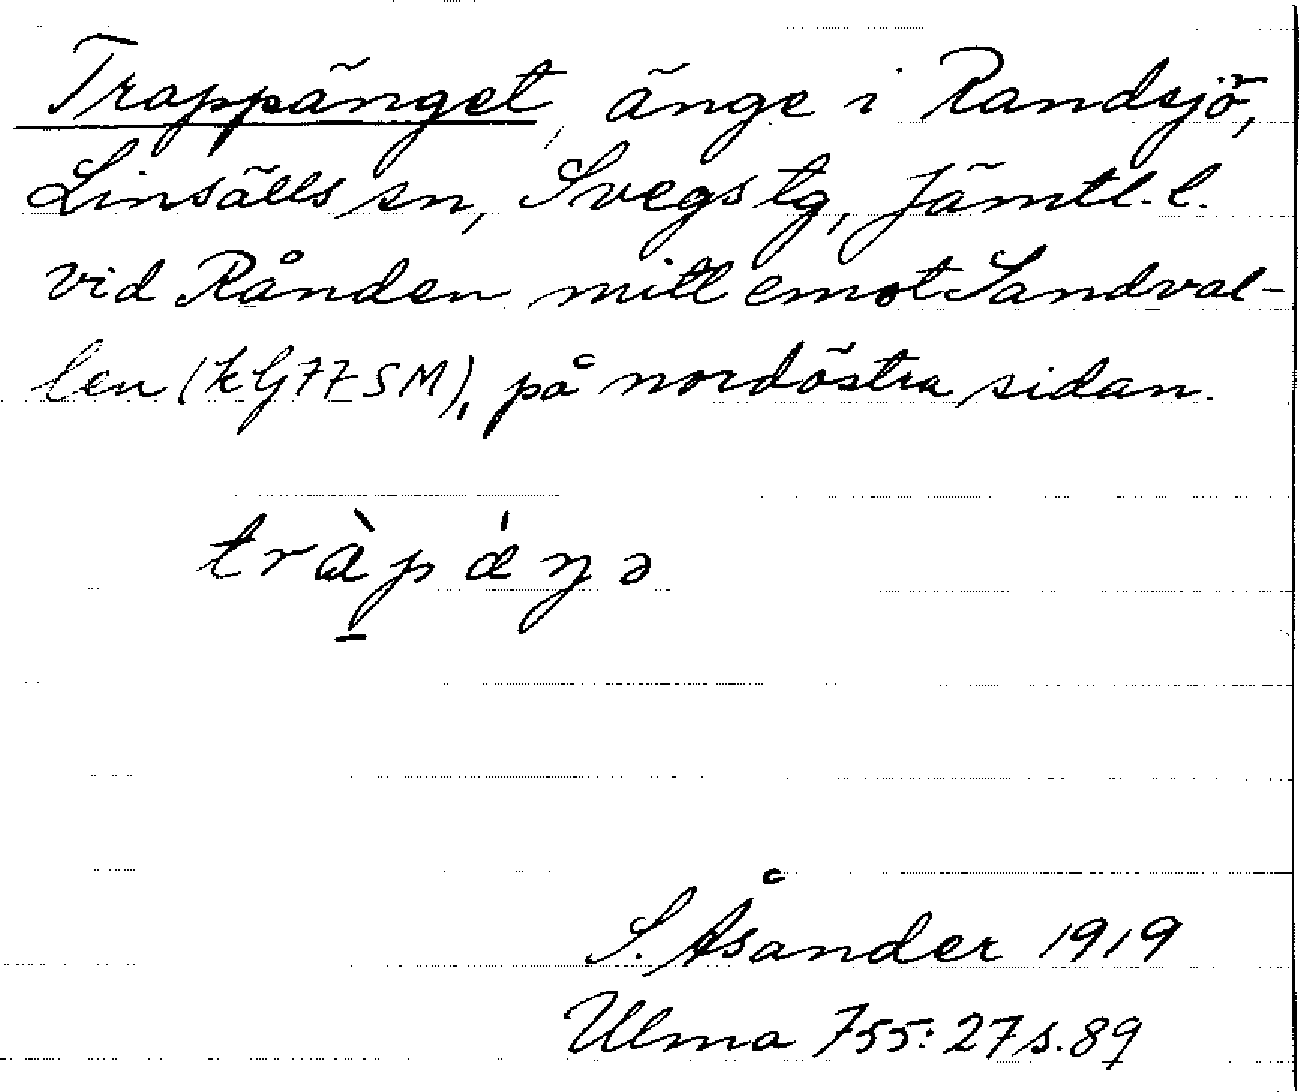 Trappänget, änge i Randsjö,
Linsälls sn, Svegs tg, Jämtl. l.
vid Rånden mitt emot Sandval-
len (k G77ZSM), på nordöstra sidan.
tràpáŋə
S. Åsander 1919
Ulma 755:27 s. 89